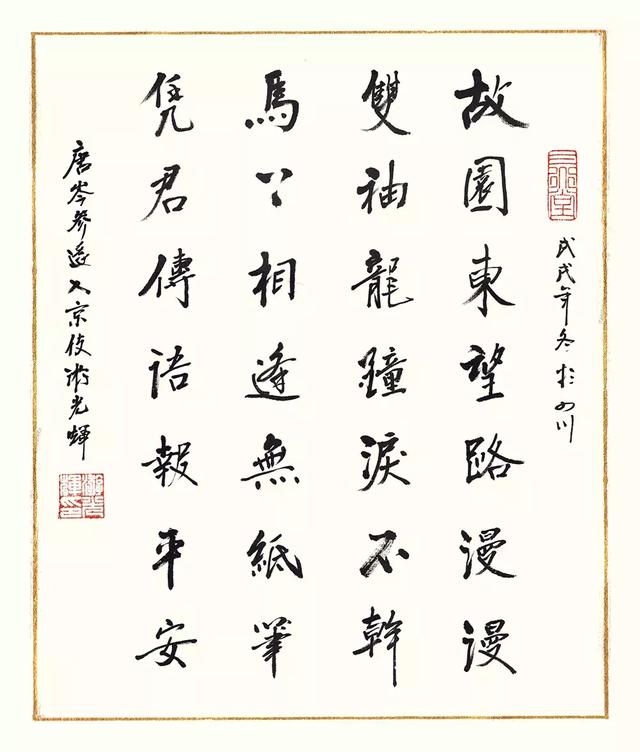 戊戌年冬於四川
故園東望路漫漫
雙袖龍鐘淚不幹
馬上相逢無紙筆
凭君傳語報平安
唐岑參逢入京使游光輝
游光輝印